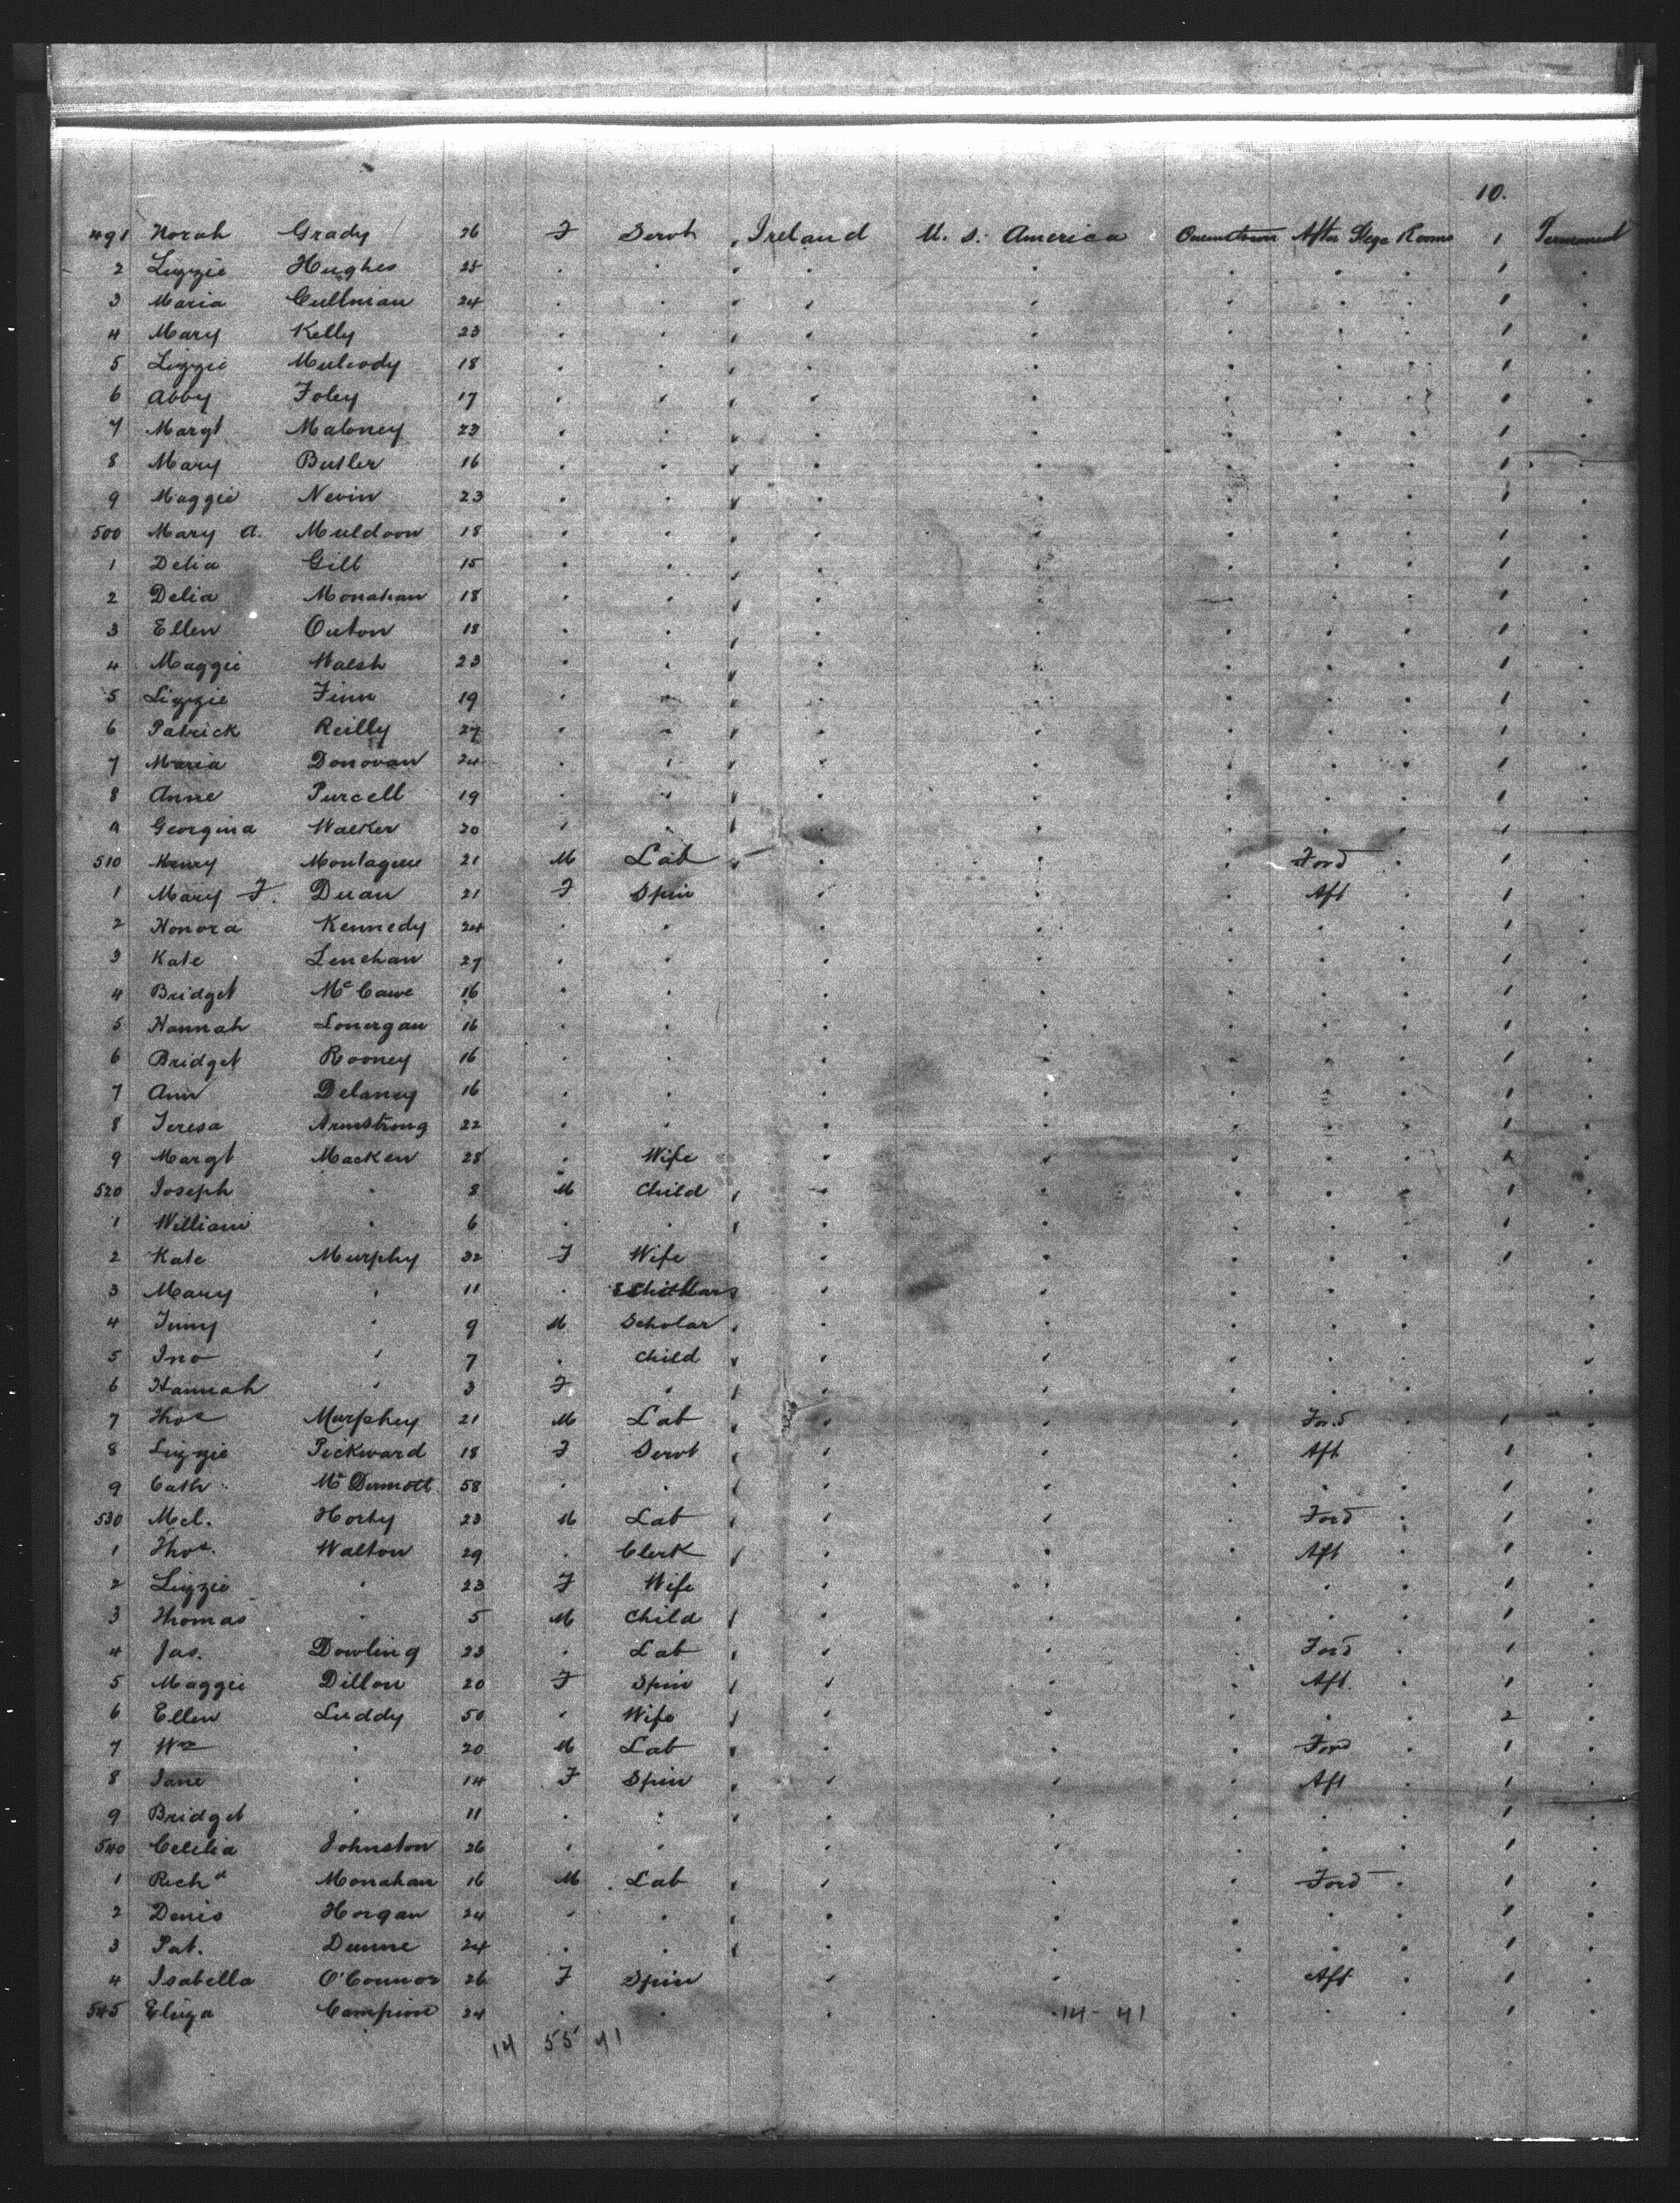 10.
491 Norah Grady 26 F Servt Ireland U. S. America Queenstown After Stge Rooms 1 Permanent
2 Lizzie Hughes 25 . . . . . . . 1 .
3 Maria Cullinan 24 . . . . . . . 1 .
4 Mary Kelly 23 . . . . . . . 1 .
5 Lizzie 18 . . . . . . . 1 .
6 Abby Foley 17 . . . . . . . 1 .
7 Margt Maloney 23 . . . . . . . 1 .
8 Mary Butler 16 . . . . . . . 1 .
9 Maggie Nevin 23 . . . . . . . 1 .
500 Mary A. Muldoon 18 . . . . . . . 1 .
1 Delia Gill 15 . . . . . . . 1 .
2 Delia Monahan 18 . . . . . . . 1 .
3 Ellen Outon 18 . . . . . . . 1 .
4 Maggie Walsh 23 . . . . . . . 1 .
5 Lizzie Finn 19 . . . . . . . 1 .
6 Patrick Reilly 27 . . . . . . . 1 .
7 Maria Donovan 24 . . . . . . . 1 .
8 Anne Purcell 19 . . . . . . . 1 .
9 Georgina Walker 20 . . . . . . . 1 .
510 Henry Montague 21 M Lab . . . Ford . 1 .
1 Mary F. Duan 21 F Spin . . . Aft . 1 .
2 Honora Kennedy 24 . . . . . . . 1 .
3 Kate Lenehan 27 . . . . . . . 1 .
4 Bridget McCawe 16 . . . . . . . 1 .
5 Hannah Lonergan 16 . . . . . . . 1 .
6 Bridget Rooney 16 . . . . . . . 1 .
7 Ann Delaney 16 . . . . . . . 1 .
8 Teresa Armstrong 22 . . . . . . . 1 .
9 Margt Macken 28 . Wife . . . . . 2 .
520 Joseph " 8 M Child . . . . . 1 .
1 William " 6 . . . . . . . 1 .
2 Kate Murphy 32 F Wife . . . . . 1 .
3 Mary " 11 . . . . . . .
4 Jimy " 9 M Scholar . . . . . .
5 Jno " 7 . Child . . . . . .
6 Hannah " 3 F . . . . . . .
7 Thos Murphey 21 M Lab . . . Ford . 1 .
8 Lizzie Pickward 18 F Servt . . . Aft . 1 .
9 Cath McDermott 58 . . . . . . . 1 .
530 Mcl. Horby 23 M Lab . . . Ford . 1 .
1 Thos. Walton 29 . Clerk . . . Aft . 1 .
2 Lizzie " 23 F Wife . . . . . 1 .
3 Thomas " 5 M Child . . . . . 1 .
4 Jas. Dowling 23 . Lab . . . Ford . 1 .
5 Maggie Dillon 20 F Spin . . . Aft . 2 .
6 Ellen Luddy 50 . Wife . . . . . 2 .
7 Wm " 20 M Lab . . . Ford . 1 .
8 Jane " 14 F Spin . . . Aft . 1 .
9 Bridget " 11 . . . . . . . 1 .
540 Cecilia Johnston 26 . . . . . . . 1 .
1 Richd Monahan 16 M Lab . . . Ford . 1 .
2 Denis Horgan 24 . . . . . . . 1 .
3 Pat. Dunne 24 . . . . . . . 1 .
4 Isabella O'Connor 26 F Spin . . . Aft . 1 .
545 Eliza Campion 24 . . . 14 - 41 . . . 1 .
14 55 41